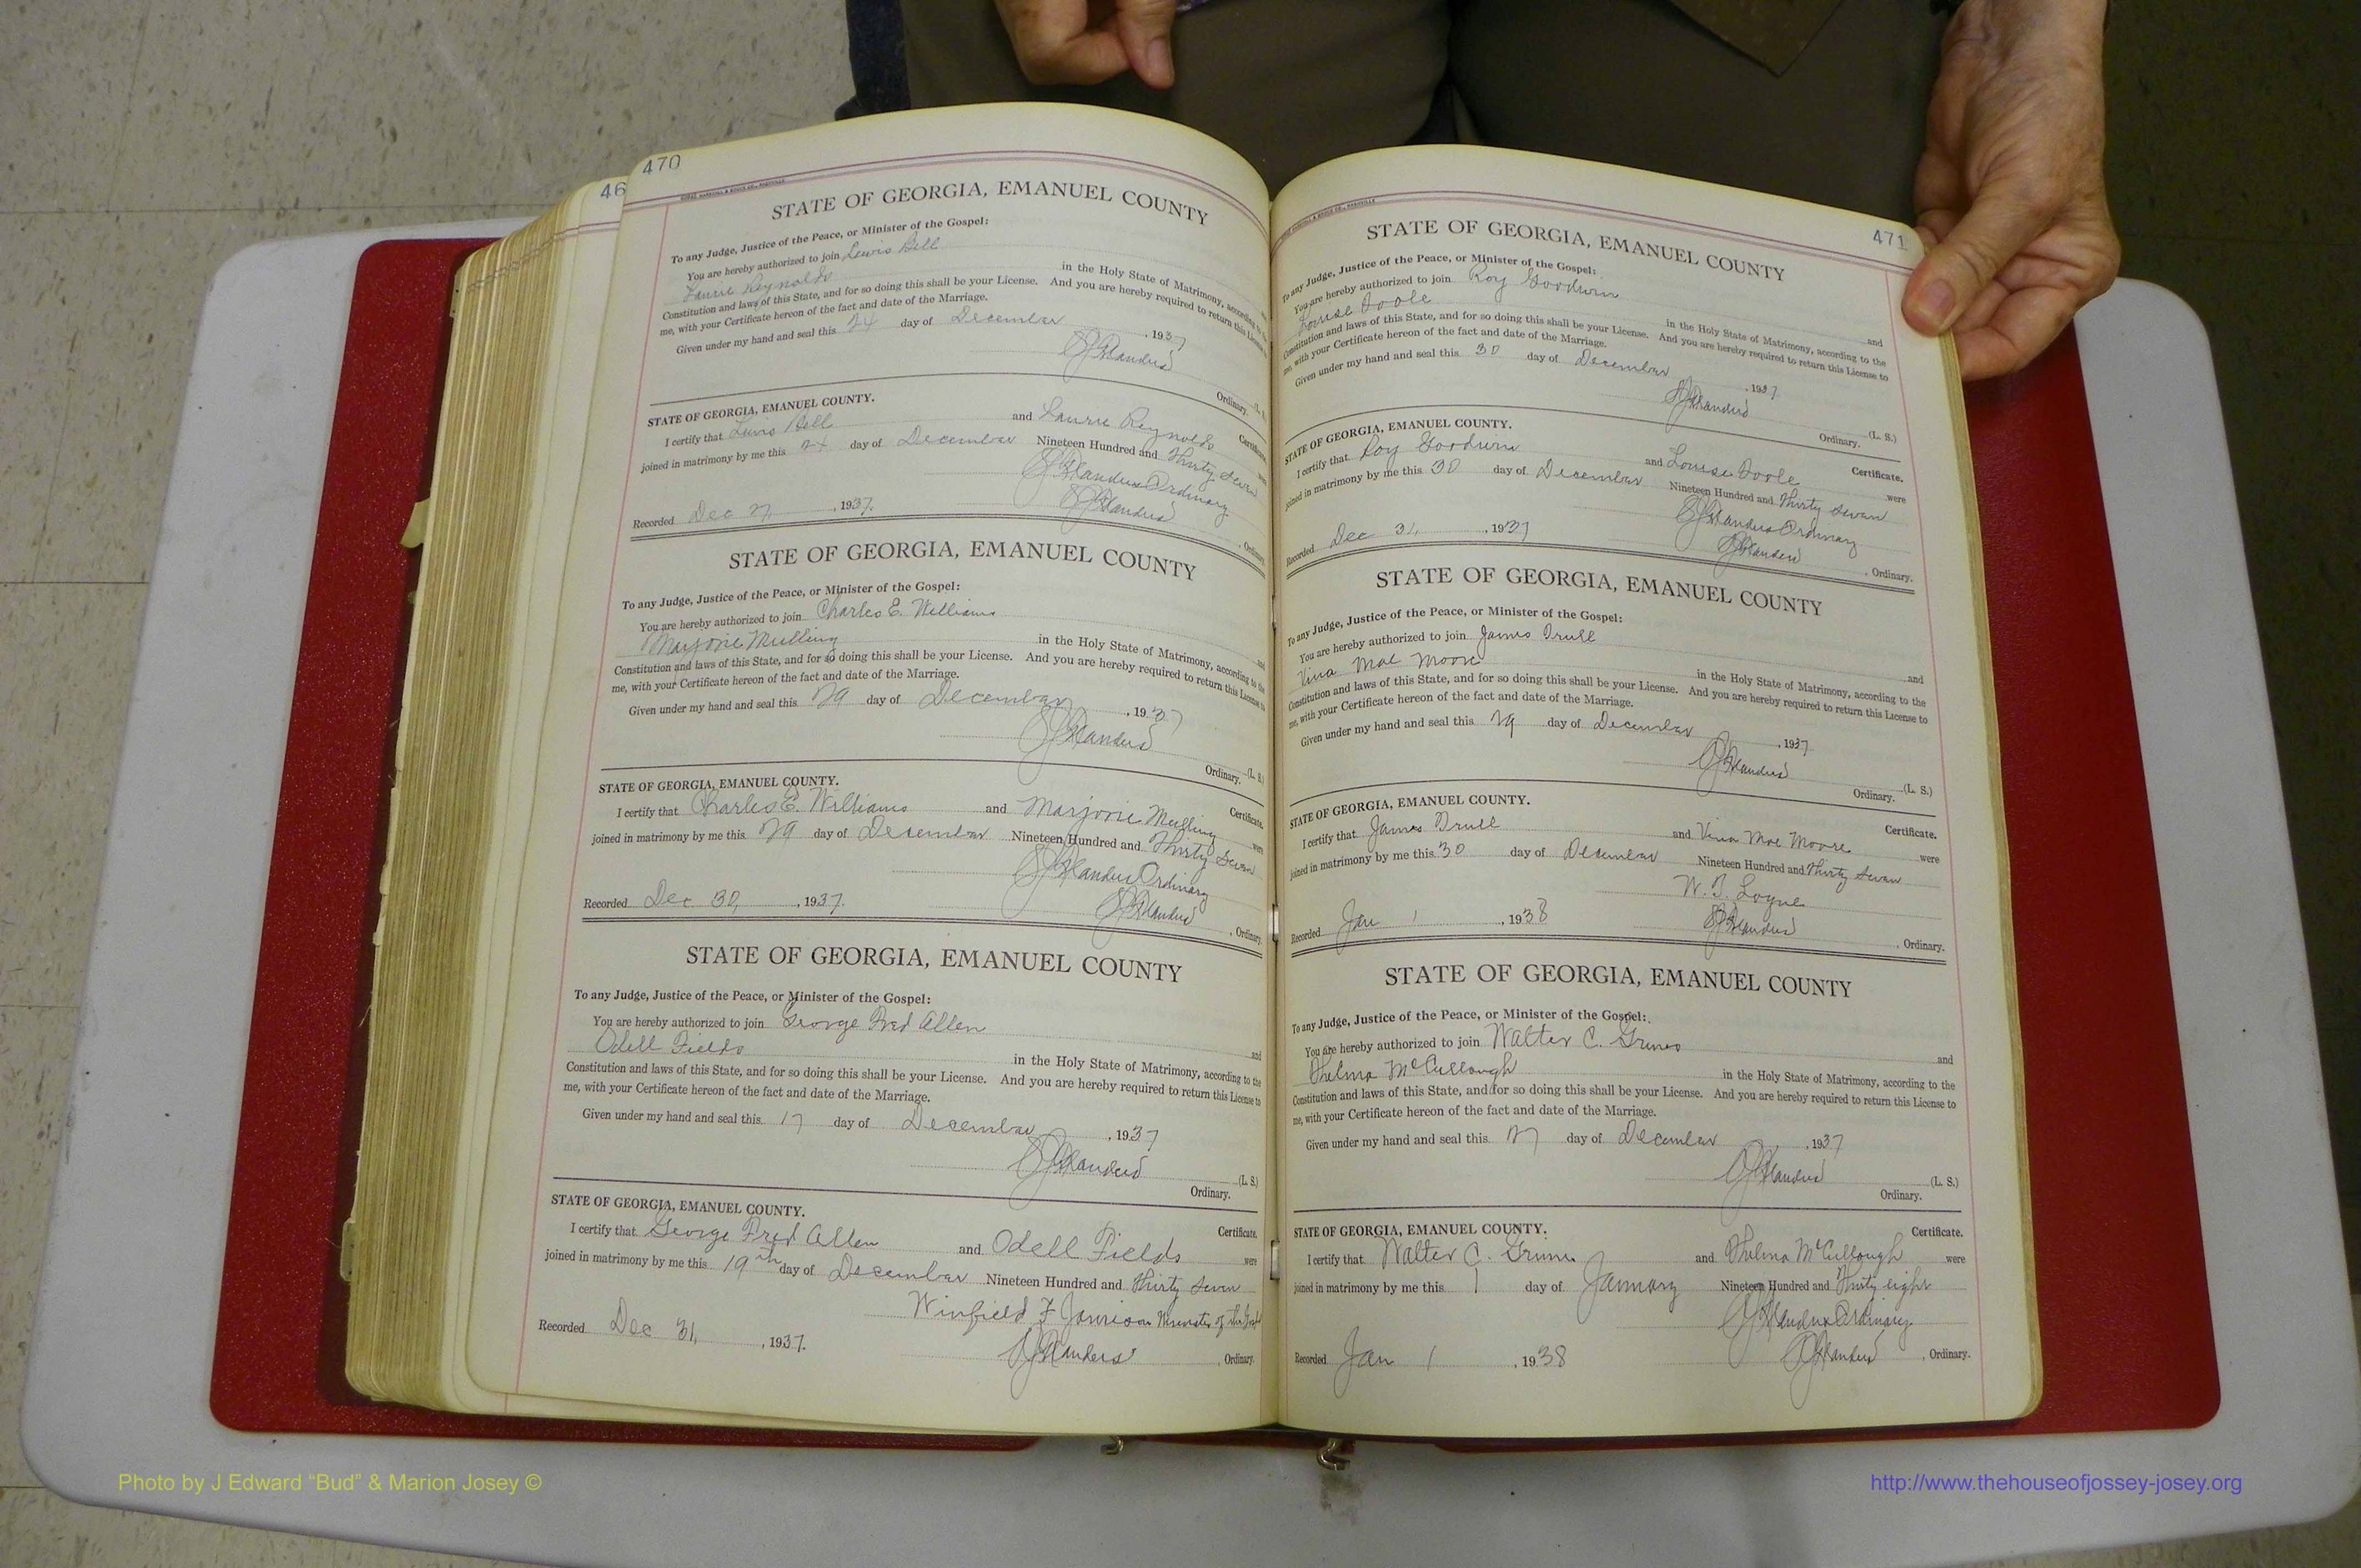 46
470
STATE OF GEORGIA, EMANUEL COUNTY
To any Judge, Justice of the Peace, or Minister of the Gospel:
You are hereby authorized to join Lewis Bell
Laurie Reynolds and
in the Holy State of Matrimony, according to the
Constitution and laws of this State, and for so doing this shall be your License. And you are hereby required to return this License to
me, with your Certificate hereon of the fact and date of the Marriage.
Given under my hand and seal this 24 day of December, 1937
Ordinary. (L. S.)
STATE OF GEORGIA, EMANUEL COUNTY. Certificate.
I certify that Lewis Bell and Laurie Reynolds were
joined in matrimony by me this 24 day of December Nineteen Hundred and Thirty Seven
Ordinary
Recorded Dec 27, 1937. Ordinary.
STATE OF GEORGIA, EMANUEL COUNTY
To any Judge, Justice of the Peace, or Minister of the Gospel:
You are hereby authorized to join Charles E. Williams and
Marjorie Mulling in the Holy State of Matrimony, according to the
Constitution and laws of this State, and for so doing this shall be your License. And you are hereby required to return this License to
me, with your Certificate hereon of the fact and date of the Marriage.
Given under my hand and seal this 29 day of December, 1937
Ordinary. (L. S.)
STATE OF GEORGIA, EMANUEL COUNTY. Certificate.
I certify that Charles E. Williams and Marjorie Mulling were
joined in matrimony by me this 29 day of December Nineteen Hundred and Thirty Seven
Ordinary
Recorded Dec 30, 1937. Ordinary.
STATE OF GEORGIA, EMANUEL COUNTY
To any Judge, Justice of the Peace, or Minister of the Gospel:
You are hereby authorized to join George Fred Allen and
Odell Fields in the Holy State of Matrimony, according to the
Constitution and laws of this State, and for so doing this shall be your License. And you are hereby required to return this License to
me, with your Certificate hereon of the fact and date of the Marriage.
Given under my hand and seal this 17 day of December, 1937
(L. S.)
Ordinary.
STATE OF GEORGIA, EMANUEL COUNTY. Certificate.
I certify that George Fred Allen and Odell Fields were
joined in matrimony by me this 19th day of December Nineteen Hundred and Thirty Seven
Winfield F Jamison Minister of the
Recorded Dec 31, 1937. Ordinary.
471
STATE OF GEORGIA, EMANUEL COUNTY
To any Judge, Justice of the Peace, or Minister of the Gospel:
You are hereby authorized to join Roy Goodwin and
Louise Toole in the Holy State of Matrimony, according to the
Constitution and laws of this State, and for so doing this shall be your License. And you are hereby required to return this License to
me, with your Certificate hereon of the fact and date of the Marriage.
Given under my hand and seal this 30 day of December, 1937
Ordinary. (L. S.)
STATE OF GEORGIA, EMANUEL COUNTY. Certificate.
I certify that Roy Goodwin and Louise Toole were
joined in matrimony by me this 30 day of December Nineteen Hundred and Thirty Seven
Ordinary
Recorded Dec 31, 1937 Ordinary.
STATE OF GEORGIA, EMANUEL COUNTY
To any Judge, Justice of the Peace, or Minister of the Gospel:
You are hereby authorized to join James Trull and
Vina Mae Moore in the Holy State of Matrimony, according to the
Constitution and laws of this State, and for so doing this shall be your License. And you are hereby required to return this License to
me, with your Certificate hereon of the fact and date of the Marriage.
Given under my hand and seal this 29 day of December, 1937
Ordinary. (L. S.)
STATE OF GEORGIA, EMANUEL COUNTY. Certificate.
I certify that James Trull and Vina Mae Moore were
joined in matrimony by me this 30 day of December Nineteen Hundred and Thirty Seven
W. T. Logue
Recorded Jan 1, 1938 Ordinary.
STATE OF GEORGIA, EMANUEL COUNTY
To any Judge, Justice of the Peace, or Minister of the Gospel:
You are hereby authorized to join Walter C. Grimes and
Thelma McCullough in the Holy State of Matrimony, according to the
Constitution and laws of this State, and for so doing this shall be your License. And you are hereby required to return this License to
me, with your Certificate hereon of the fact and date of the Marriage.
Given under my hand and seal this 27 day of December, 1937
(L. S.)
Ordinary.
STATE OF GEORGIA, EMANUEL COUNTY. Certificate.
I certify that Walter C. Grimes and Thelma McCullough were
joined in matrimony by me this 1 day of January Nineteen Hundred and Thirty eight
Ordinary
Recorded Jan 1, 1938 Ordinary.
Photo by J Edward “Bud” & Marion Josey ©
http://www.thehouseofjossey-josey.org